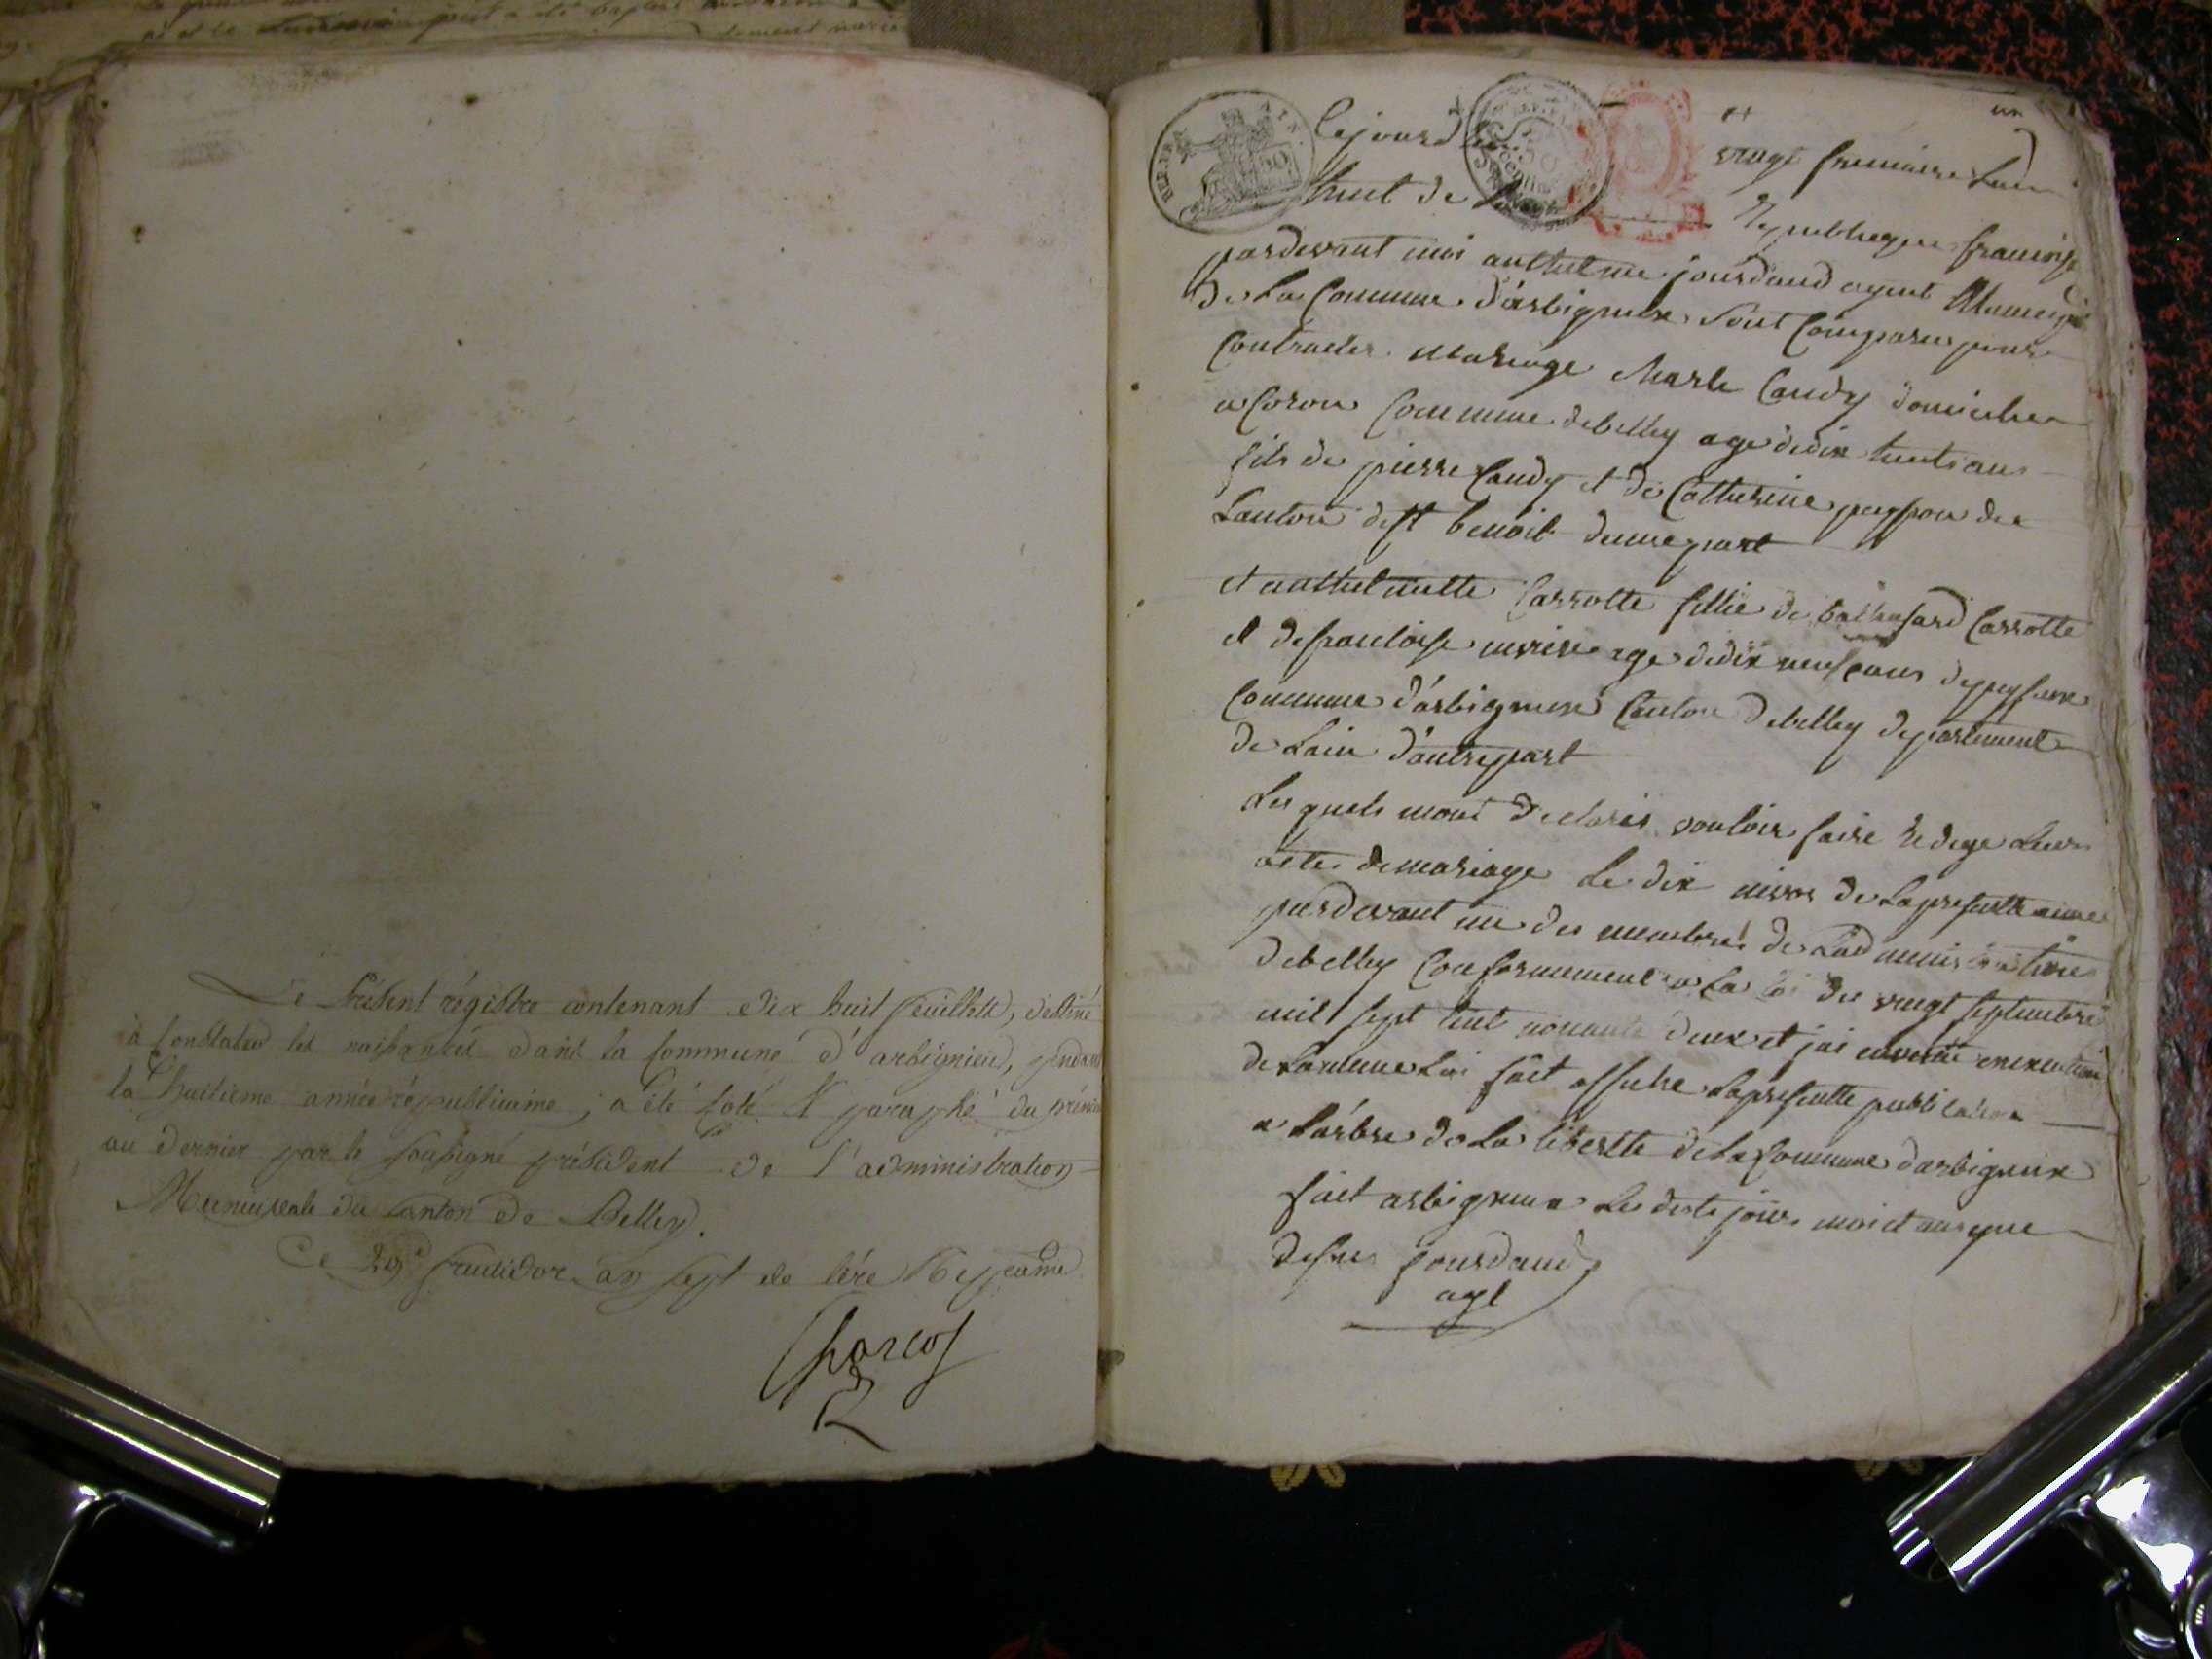 Le présent régistre contenant dix huit feuillets, destiné
à constater les naissances dans la commune d'arbignieu, pendant
la huitieme année républicaine, a été coté et paraphé du premier
au dernier par le soussigné président de l'administration
Municipale du canton de Belley.
Ce 29e fructidor an sept de l'ère Répcaine
Charcot
un
REP. FRA. AIN.
50
Cejourd vingt frimaire Lan
huit de la Republique francaise
pardevant moi anthelme jourdand agent Municipal
de La Commune d'arbignieux Sont Comparus pour
Contracter mariage Charle Candy domicilié
a Coron Commune debelley age dedix huit ans
fils de pierre Candy et de Catherine peysson du
Canton dest benoit dunepart
et anthelmette Carrotte fillie de balthasard Carrotte
et defrancoise age dedix neuf ans depeysieux
Commune d'arbignieux Canton debelley departement
de Lain d'autrepart
Lesquels mont declarés vouloir faire Redige Leur
acte demariage Le dix nivos de Lapresente année
pardevant un des membres de Ladministration
debelley Conformement a La loi du vingt septembre
mil sept Cent nonante deux et jai enexecution
de Lameme Loi fait afficher Lapresentte publication
a L'arbre de La libertte de La Commune darbignieux
fait arbignieux Les dits jour mois et an que
desus jourdand
agt